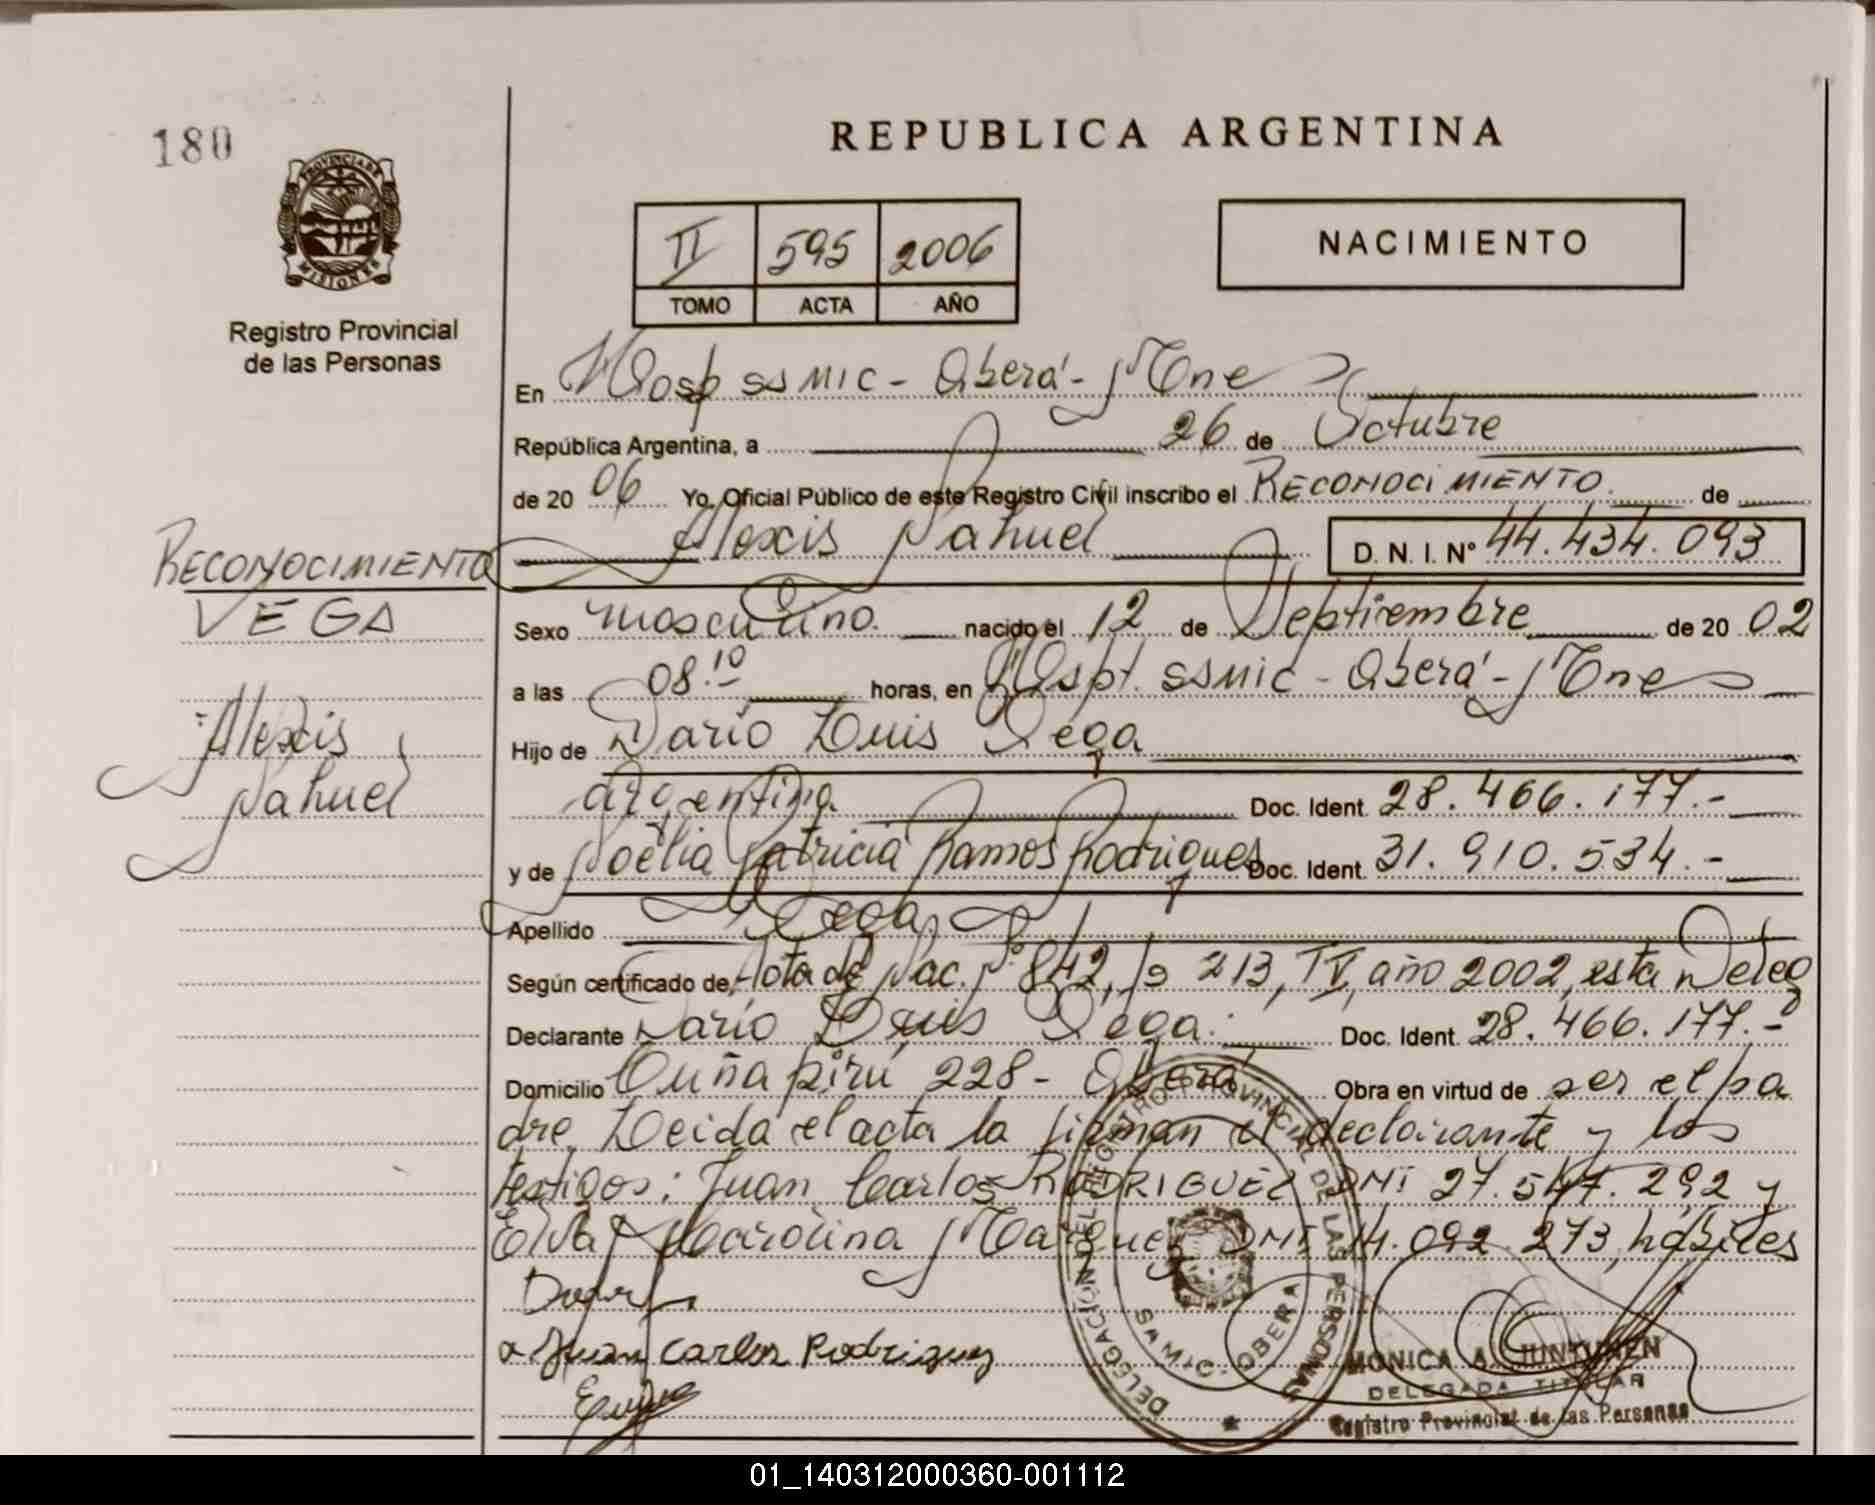 180
REPUBLICA ARGENTINA
PROVINCIA DE
MISIONES
Registro Provincial
de las Personas
II 595 2006
TOMO ACTA AÑO
NACIMIENTO
En Hosp SSMIC - Oberá - Mnes
República Argentina, a 26 de Octubre
de 20 06 Yo, Oficial Público de este Registro Civil inscribo el RECONOCIMIENTO de
Alexis Nahuel D. N. I. Nº 44.434.093
RECONOCIMIENTO
VEGA
Alexis
Nahuel
Sexo masculino. nacido el 12 de Septiembre de 20 02
a las 08.10 horas, en Hospt. SSMIC - Oberá - Mnes
Hijo de Darío Luis Vega
argentina Doc. Ident. 28.466.177.-
y de Noelia Patricia Ramos Rodrigues Doc. Ident. 31.910.534.-
Apellido Vega
Según certificado de Acta de Nac. Nº 842, Fº 213, T IV, año 2002, esta Deleg
Declarante Darío Luis Vega. Doc. Ident. 28.466.177.-
Domicilio Cuña pirú 228 - Oberá Obra en virtud de ser el pa
dre. Leida el acta la firman el declarante y los
testigos: Juan Carlos RODRIGUEZ DNI 27.547.292 y
Elva Carolina Marquez DNI 14.092.273, hábiles
Juan Carlos Rodriguez
DELEGACIÓN DEL REGISTRO PROVINCIAL DE LAS PERSONAS
SAMIC - OBERA
MONICA A. JUNTUNEN
DELEGADA TITULAR
Registro Provincial de las Personas
01_140312000360-001112